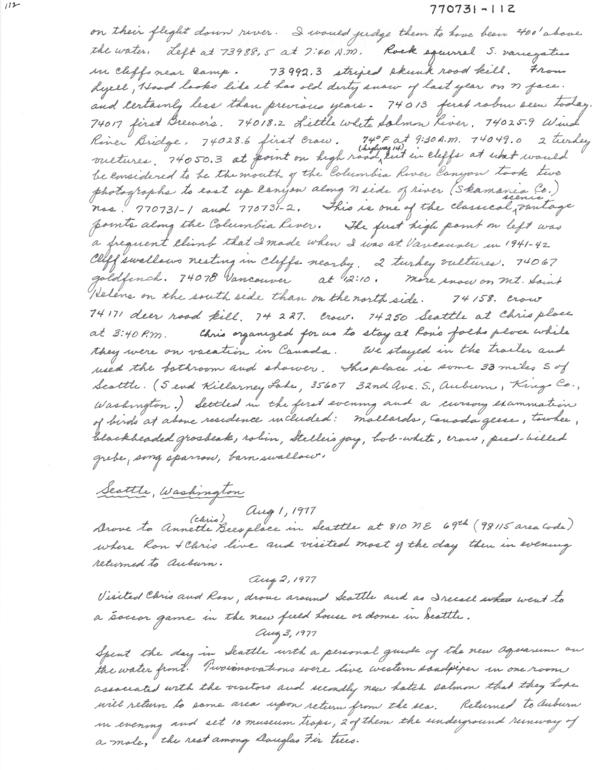 112
770731-112
on their flight down river. I would judge them to have been 400' above
the water. Left at 73988.5 at 7:40 A.M. Rock squirrel S. variegatus
in cliffs near camp. 73992.3 striped skunk road kill. From
Lyell, Hood looks like it has old dirty snow of last year on N face.
and certainly less than previous years. 74013 first robin seen today.
74017 first Brewer's. 74018.2 Little White Salmon River. 74025.9 Wind
River Bridge. 74028.6 first crow. 74°F at 9:30 A.M. 74049.0 2 turkey
vultures. 74050.3 at point on high road (highway 14), cut in cliffs at what would
be considered to be the mouth of the Columbia River Canyon took two
photographs to east up canyon along N side of river (Skamania Co.)
nos. 770731-1 and 770731-2. This is one of the classical, scenic vantage
points along the Columbia River. The first high point on left was
a frequent climb that I made when I was at Vancouver in 1941-42
Cliff swallows nesting in cliffs nearby. 2 turkey vultures. 74067
goldfinch. 74078 Vancouver at 12:10. More snow on Mt. Saint
Helens on the south side than on the north side. 74158. crow
74171 deer road kill. 74227. crow. 74250 Seattle at Chris place
at 3:40 P.M. Chris organized for us to stay at Ron's folks place while
they were on vacation in Canada. We stayed in the trailer and
used the bathroom and shower. This place is some 33 miles S of
Seattle. (S end Killarney Lake, 35607 32nd Ave. S., Auburn, King Co.,
Washington.) Settled in the first evening and a cursory examination
of birds at above residence included: mallards, Canada geese, towhee,
blackheaded grosbeak, robin, Steller's jay, bob-white, crow, pied-billed
grebe, song sparrow, barn swallow.
Seattle, Washington
Aug 1, 1977
Drove to Annette (Chris) Bees place in Seattle at 810 NE 69th (98115 area code)
where Ron & Chris live and visited most of the day then in evening
returned to Auburn.
Aug 2, 1977
Visited Chris and Ron, drove around Seattle and as I recall went to
a soccer game in the new field house or dome in Seattle.
Aug 3, 1977
Spent the day in Seattle with a personal guide of the new Aquarium on
the water front. Two innovations were live western sandpiper in one room
associated with the visitors and secondly new hatch salmon that they hope
will return to same area upon return from the sea. Returned to Auburn
in evening and set 10 museum traps, 2 of them the underground runway of
a mole, the rest among Douglas Fir trees.